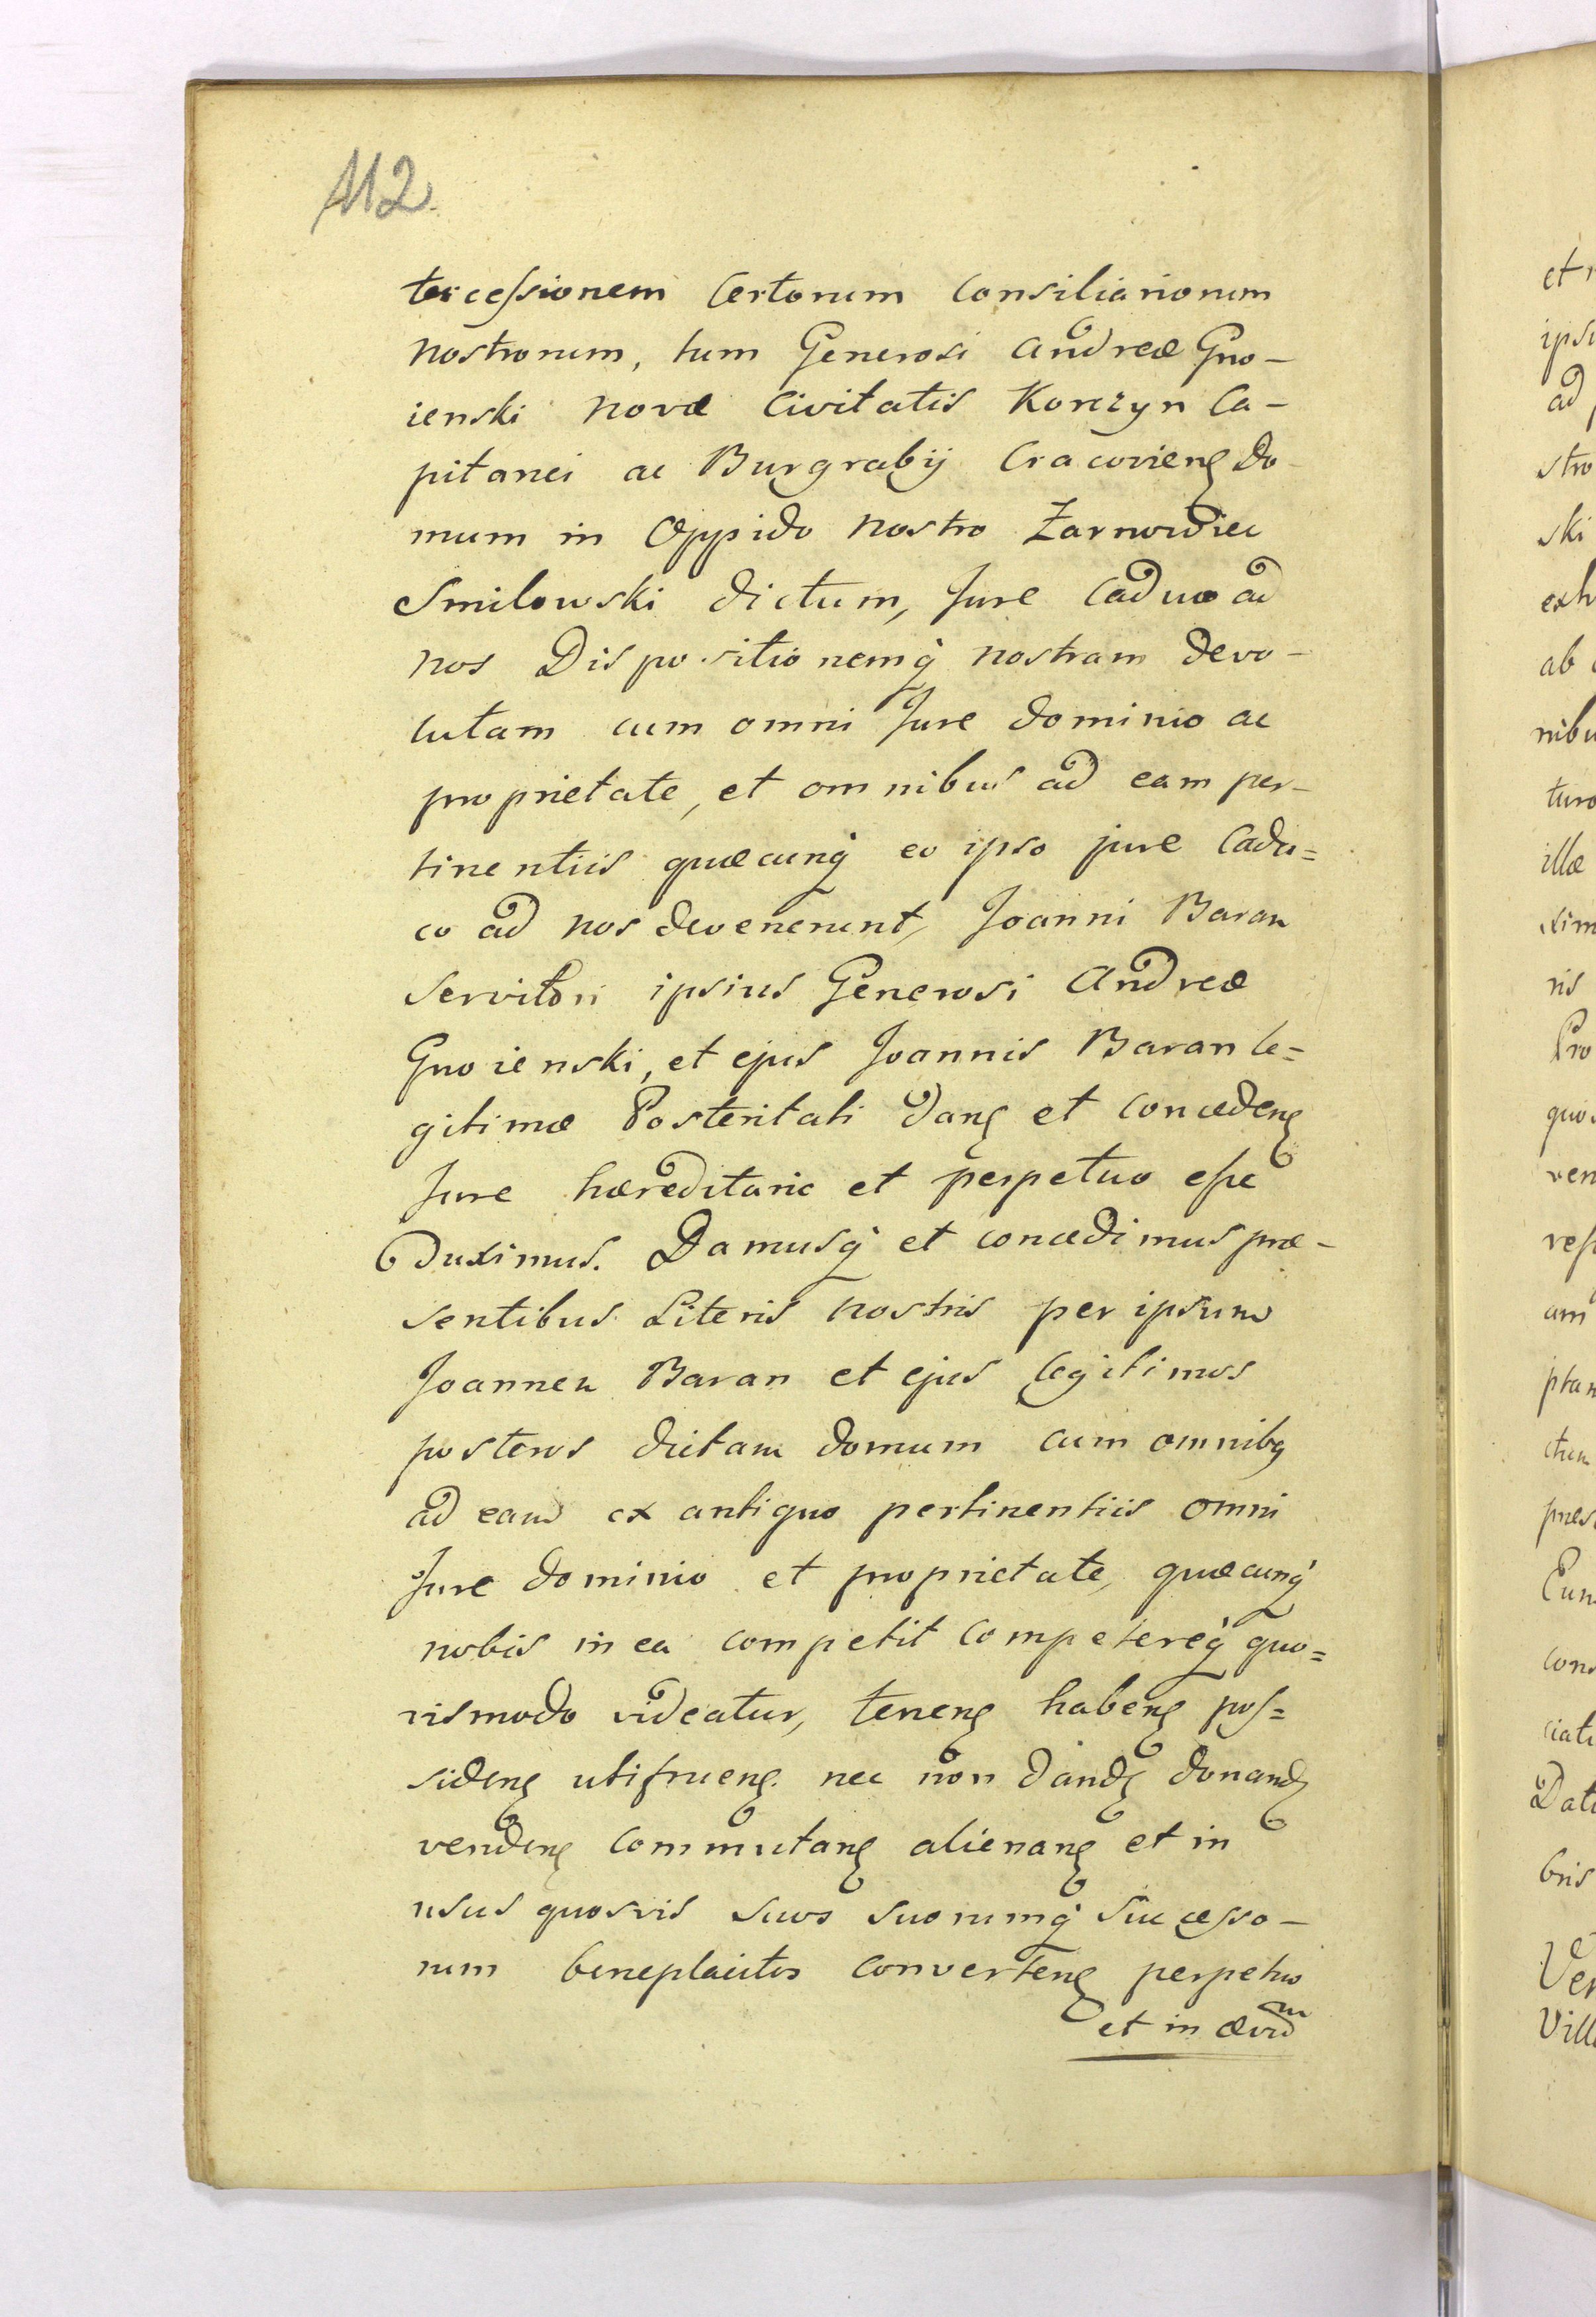 112.
tercessionem Certorum Consiliariorum
Nostrorum, tum Generosi Andreæ Gno-
ienski Novæ Civitatis Korczyn Ca-
pitanei ac Burgrabij Cracovienꝭ Do-
mum in Oppido Nostro Żarnowiec
Smilowski dictum, Jure Caduco ad
Nos Dispositionemq́ nostram devo-
lutam cum omni Jure dominio ac
proprietate, et omnibus ad eam per-
tinentiis quæcunq́ eo ipso jure Cadu=
co ad nos devenerunt, Joanni Baran
Servitori ipsius Generosi Andreæ
Gnoienski, et ejus Joannis Baran le=
gitimæ Posteritati danꝭ et concedenꝭ
Jure hæreditario et perpetuo esse
duximus. Damusq́ et concedimus præ-
sentibus Literis nostris per ipsum
Joannem Baran et ejus legitimos
posteros dictam domum cum omnibꝫ
ad eam ex antiquo pertinentiis omni
Jure dominio et proprietate, quæcunq́
nobis in ea competit competereq́ quo=
vismodo videatur, tenenꝭ habenꝭ pos=
sidenꝭ utifruenꝭ. nec non dandꝭ donandꝭ
vendenꝭ commutanꝭ alienanꝭ et in
usus quosvis suos suorumq́ Successo-
rum beneplacitos convertenꝭ perpetuo
et in ævum
et
ips
ad
stro
ski
exh
ab
nibu
turo
illæ
xim
ris
Pro
quos
ven
ress
am
ptam
ctum
præs
Cun
cons
ciati
Datu
bris
Ver
Vill